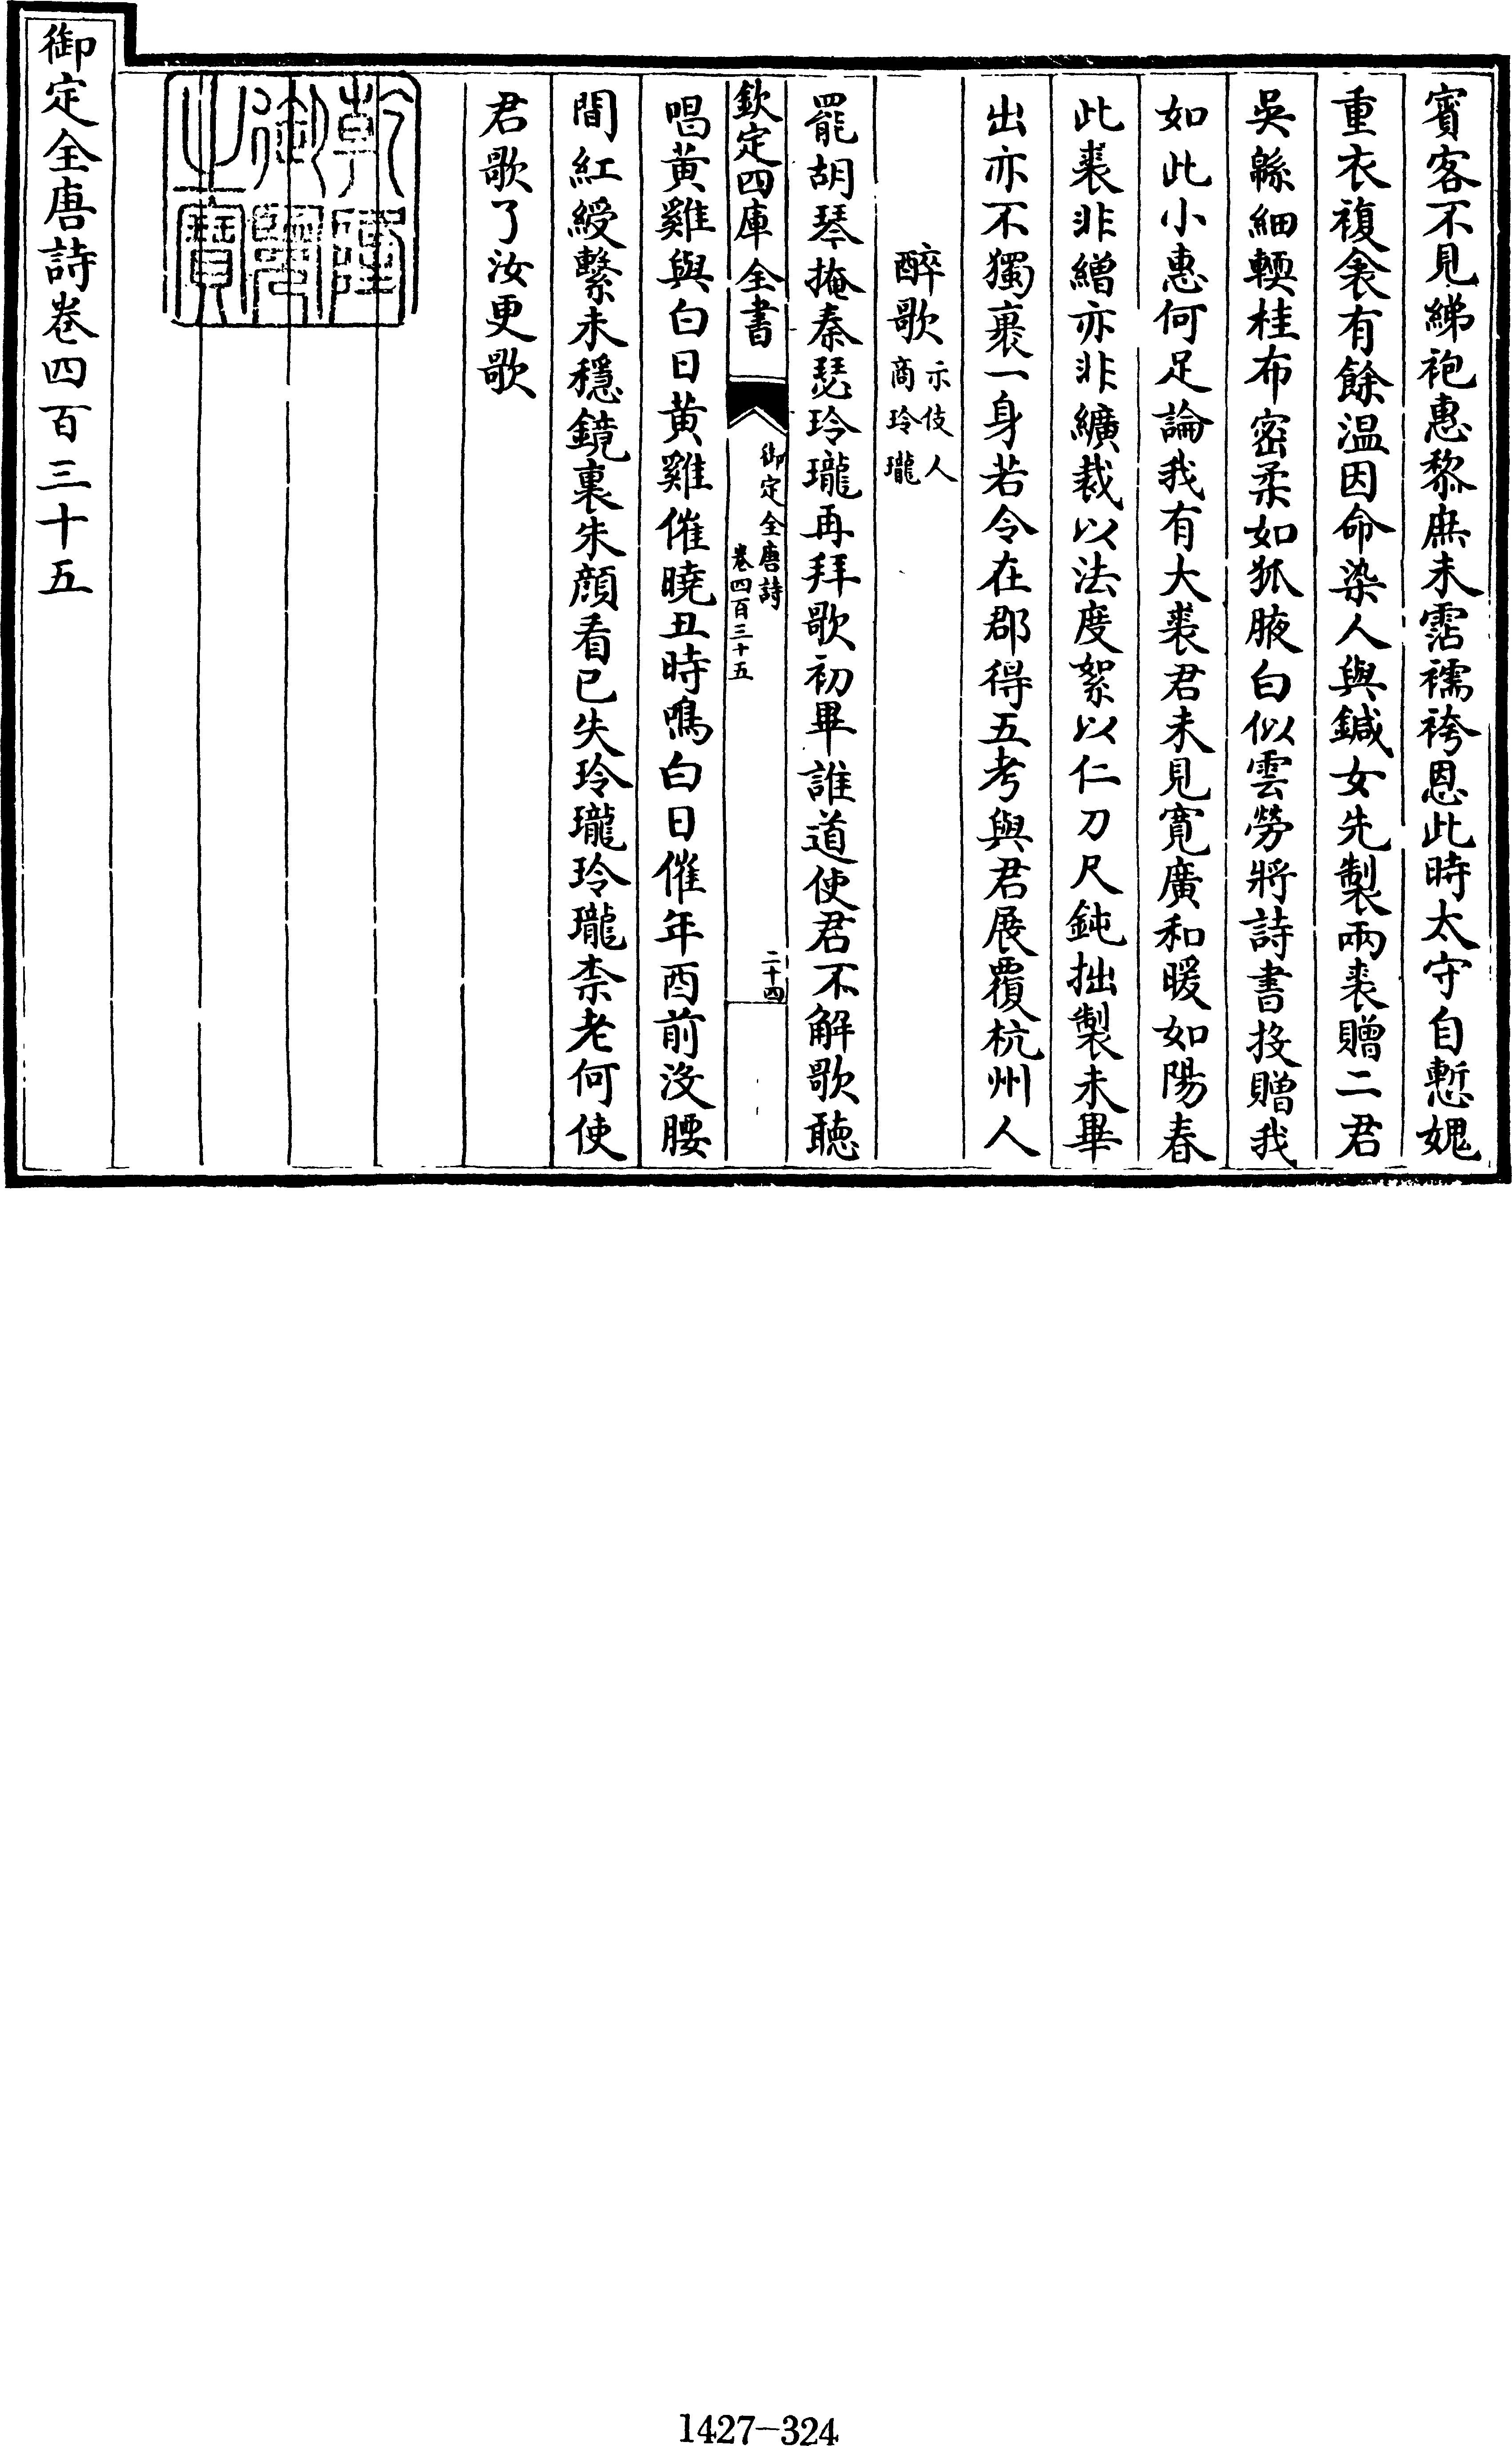 賓客不見綈袍惠黎庶未霑襦袴恩此時太守自慙媿
重衣複衾有餘温因命染人與鍼女先製兩裘贈二君
吳緜細輭桂布密柔如狐腋白似雲勞將詩書投贈我
如此小惠何足論我有大裘君未見寛廣和暖如陽春
此裘非繒亦非纊裁以法度絮以仁刀尺鈍拙製未畢
出亦不獨裹一身若令在郡得五考與君展覆杭州人
醉歌示伎人商玲瓏
罷胡琴掩秦瑟玲瓏再拜歌初畢誰道使君不解歌聽
欽定四庫全書
御定全唐詩
卷四百三十五
二十四
唱黄雞與白日黄雞催曉丑時鳴白日催年酉前沒腰
間紅綬繫未穩鏡裏朱顔看已失玲瓏玲瓏柰老何使
君歌了汝更歌
乾隆
御覽
之寶
御定全唐詩卷四百三十五
1427-324